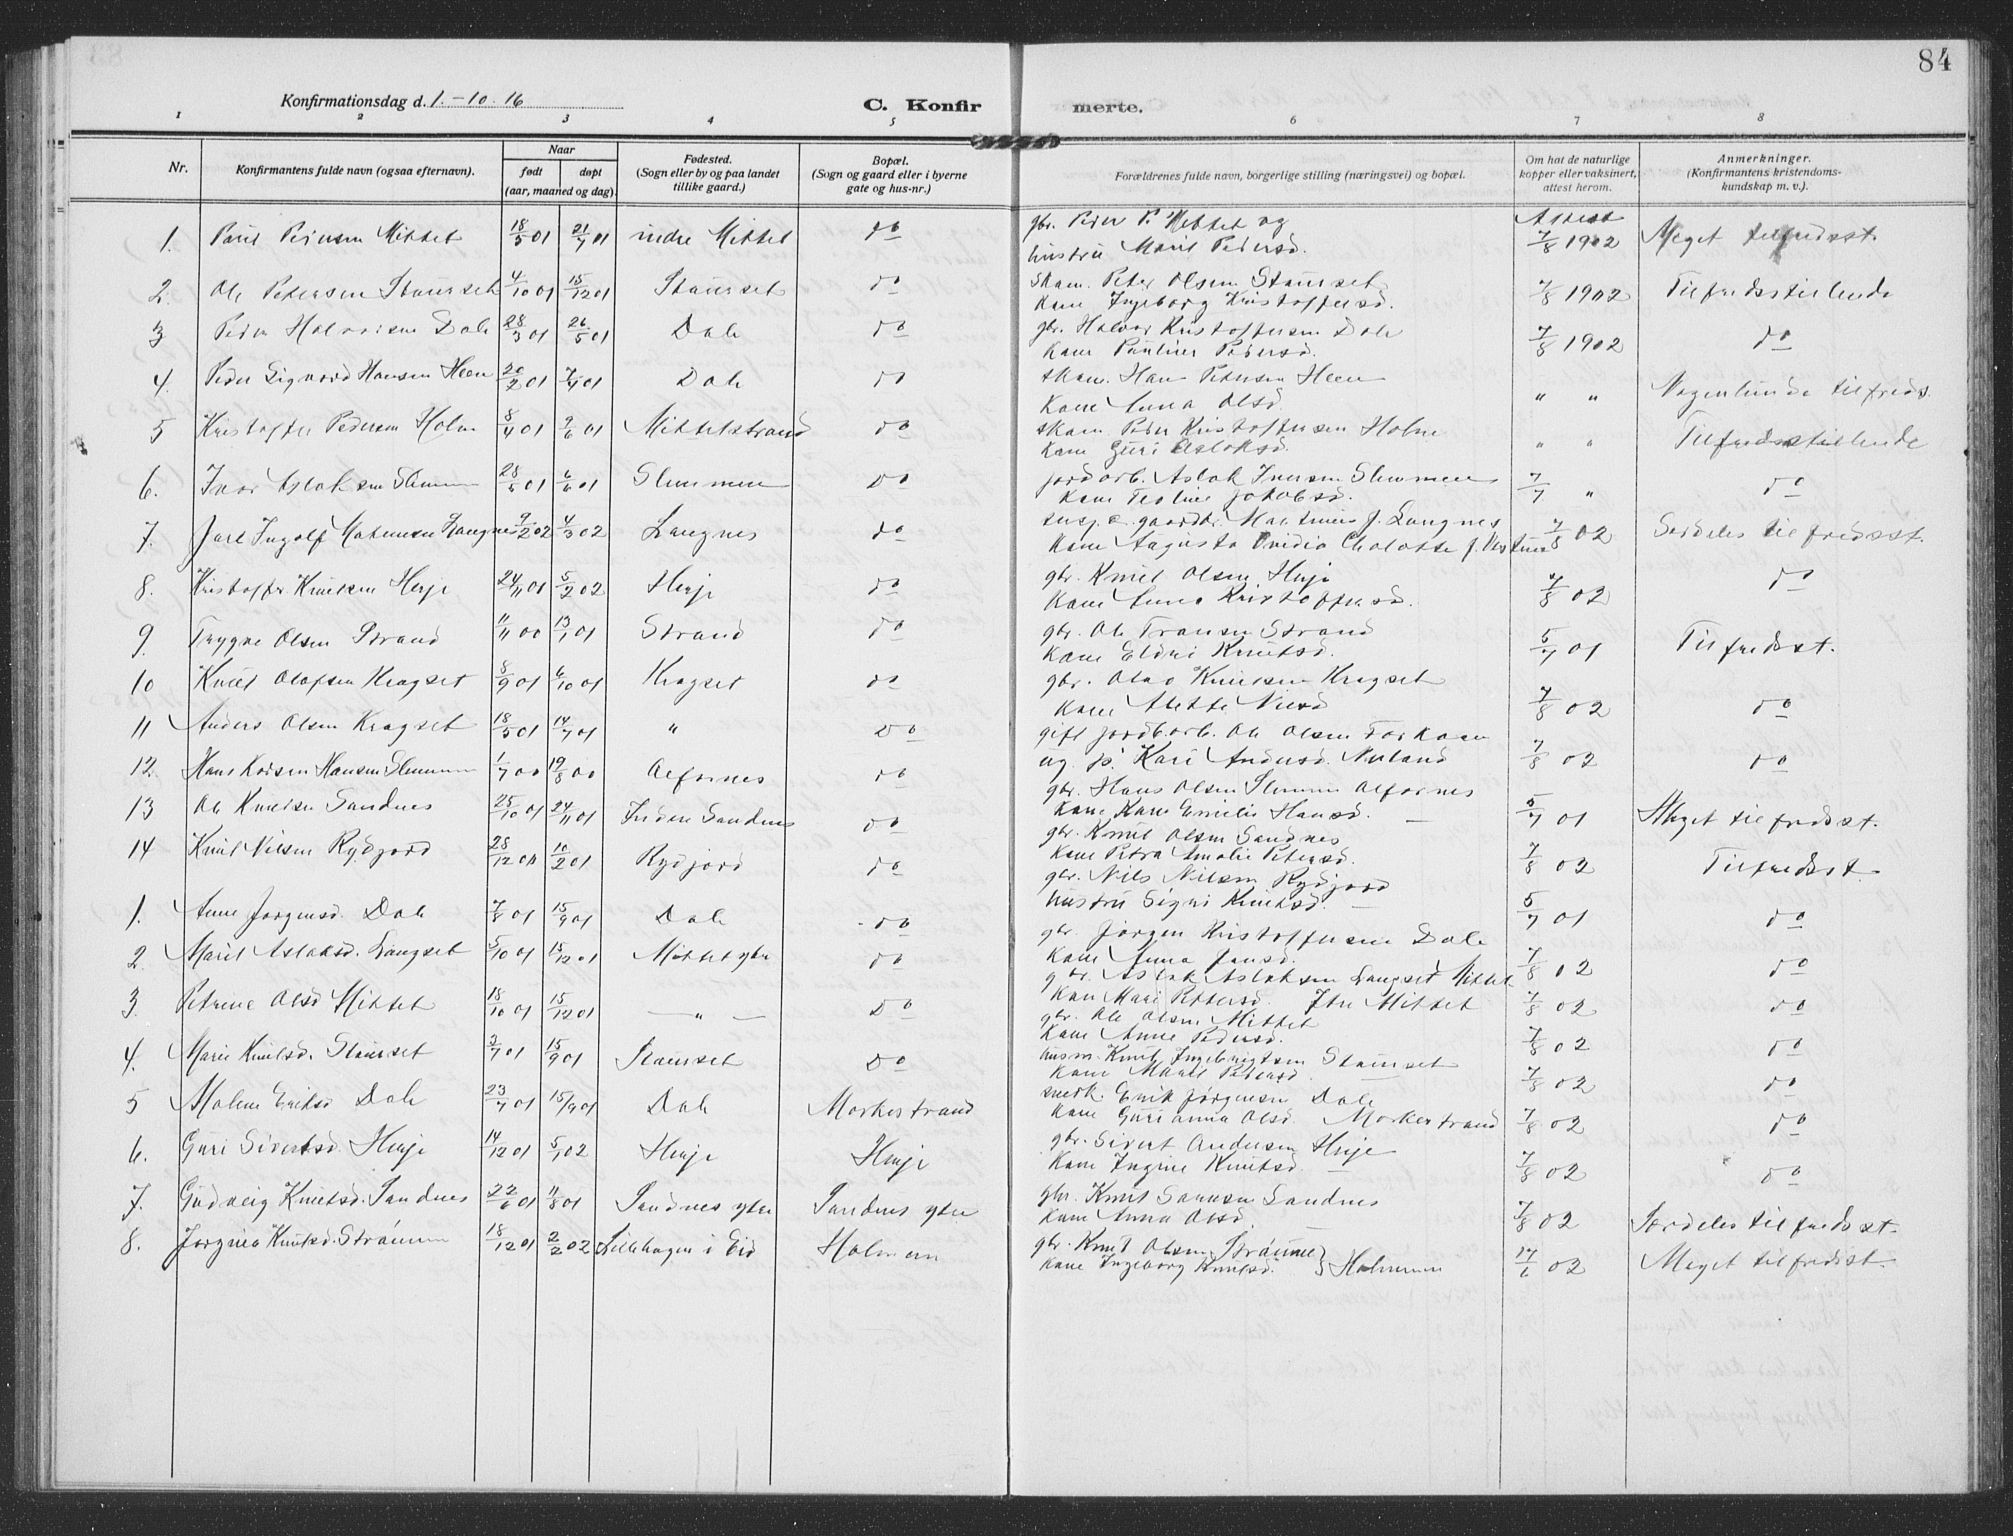 84
Konfirmationsdag d. 1.-10. 16
C. Konfir merte.
1 2 3 4 5 6 7 8
Nr.
Konfirmantens fulde navn (ogsaa efternavn).
Naar
født døpt
(aar, maaned og dag).
Fødested.
(Sogn eller by og paa landet
tillike gaard.)
Bopæl.
(Sogn og gaard eller i byerne
gate og hus-nr.)
Forældrenes fulde navn, borgerlige stilling (næringsvei) og bopæl.
Om hat de naturlige
kopper eller vaksinert,
attest herom.
Anmerkninger.
(Konfirmantens kristendoms-
kundskap m. v.).
1. Paul Pedersen Mittet 18/5 01 21/7 01 indre Mittet do gbr. Peder P. Mittet og Attest
hustru Marit Pedersd. 7/8 1902 Meget tilfredsst.
2. Ole Petersen Staurset 4/10 01 15/12 01 Staurset do skom. Peter Olsen Staurset
Kone Ingeborg Kristoffersd. 7/8 1902 Tilfredsstillende
3 Peder Halvorsen Dale 28/3 01 26/5 01 Dale do gbr. Halvor Kristoffersen Dale
Kone Pauline Pedersd. 7/8 1902 do
4. Peder Sigvard Hansen Heen 20/2 01 7/4 01 Dale do skom. Hans Petersen Heen
Kone Anna Olsd. " " Nogenlunde tilfreds.
5 Kristoffer Pedersen Holm 8/4 01 9/6 01 Mittetstrand do skom. Peder Kristoffersen Holm
Kone Guri Aslaksd. " " Tilfredsstillende
6. Ivar Aslaksen Slemmen 28/5 01 6/6 01 Slemmen do jordarb. Aslak Iversen Slemmen
Kone Jakobsd. 7/7 " do
7. Jarl Ingolf Langnes 9/2 02 4/3 02 Langnes do gaardbr. J. Langnes
Kone Augusta Ovidia Charlotte J. 7/8 02 Særdeles tilfredsst.
8. Kristoffer Knutsen Herje 24/11 01 5/2 02 Herje do gbr. Knut Olsen Herje
Kone Anna Kristoffersd. 7/8 02 do
9. Trygve Olsen Strand 11/11 00 13/1 01 Strand do gbr. Ole Transen Strand
Kone Eldri Knutsd. 5/7 01 Tilfredsst.
10 Knut Olafsen Kragset 8/9 01 6/10 01 Kragset do gbr. Olav Knutsen Kragset
Kone 7/8 02 do
11 Anders Olsen Kragset 18/5 01 14/7 01 " do gift jordb.arb. Ole Olsen
ug. p. Kari Andersd. Nyland 7/8 02 do
12. Hans Hansen Slemmen 1/7 00 19/8 00 Alfarnes do gbr. Hans Olsen Slemmen Alfarnes
Kone Karen Emilie Hansd. 5/7 01 Meget tilfredsst.
13 Ole Knutsen Sandnes 25/10 01 24/11 01 Indre Sandnes do gbr. Knut Olsen Sandnes
Kone Petra Amalie Petersd. 7/8 02 Tilfredsst.
14 Knut Nilsen Rydjord 28/12 00 10/2 01 Rydjord do gbr. Nils Nilsen Rydjord
hustru Signi Knutsd. 5/7 01 do
1. Anne Jørgensd. Dale 7/8 01 15/9 01 Dale do gbr. Jørgen Kristoffersen Dale
Kone Anna Jensd. 7/8 02 do
2 Marit Aslaksd. Langset 5/10 01 15/12 01 Mittet ytre do gbr. Aslak Aslaksen Langset Mittet
Kone Mari Pettersd. Ytre Mittet 7/8 02 do
3. Petrine Olsd Mittet 18/10 01 15/12 01 — " — do gbr. Ole Olsen Mittet
Kone Anne Pedersd. 7/8 02 do
4. Marie Knutsd. Staurset 2/7 01 15/9 01 Staurset do husm. Knut Ingebrigtsen Staurset
Kone Marit Pedersd 7/8 02 do
5 Malene Eriksd Dale 23/7 01 15/9 01 Dale Morkestrand snek. Erik Jørgensen Dale
Kone Gurianna Olsd. Morkestrand 7/8 02 do
6. Guri Sivertsd. Herje 14/12 01 5/1 02 Herje Herje gbr. Sivert Andersen Herje
Kone Ingine Knutsd. 7/8 02 do
7. Gudveig Knutsd. Sandnes 22/6 01 11/8 01 Sandnes ytre Sandnes ytre gbr. Knut Sandnes
Kone Anna Olsd 7/8 02 Særdeles tilfredsst.
8. Jørgine Knutsd. Strømme 18/12 01 2/2 02 Lillehagen i Eid Holmem gbr. Knut Olsen Strømme
Kone Ingeborg Knutsd. } Holmem 17/6 02 Meget tilfredsst.